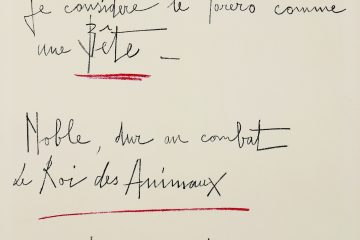 Je considère le Torero comme
une Bête _
Noble, dur au combat
Le Roi des Animaux